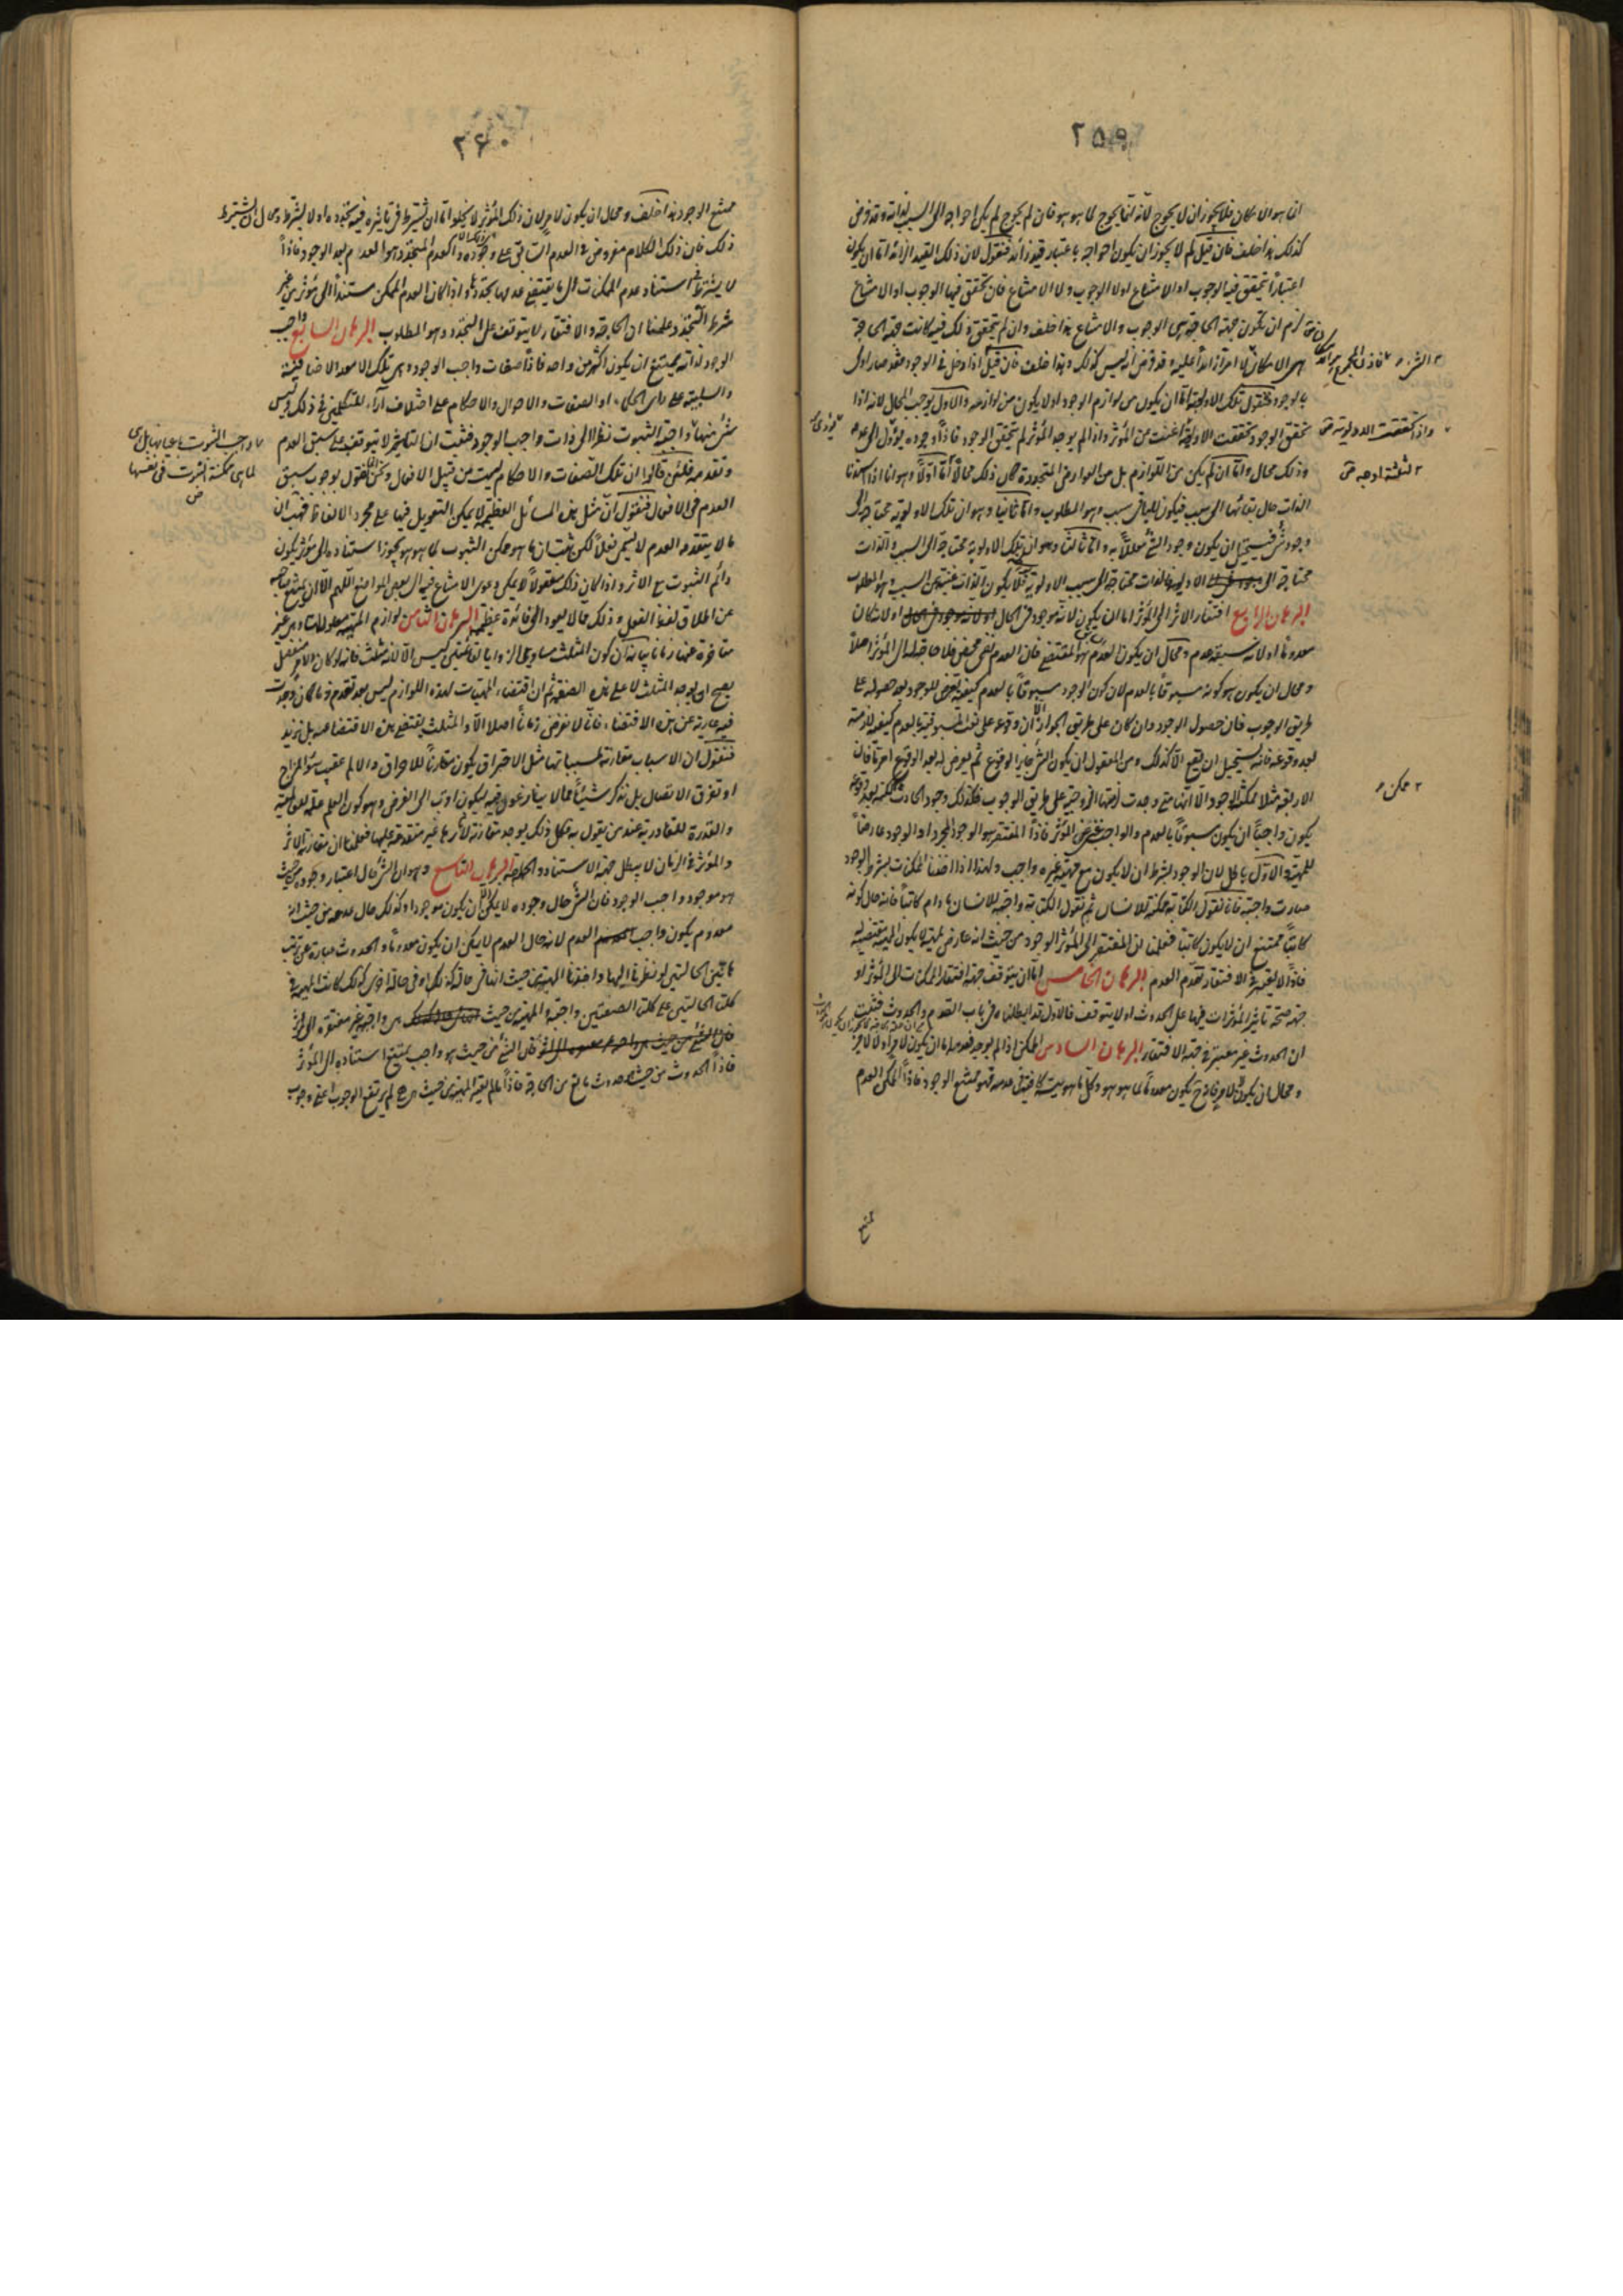 ٢٥٩
ان هو الامكان فلا يجوز ان لا يحوج لانه انما يحوج لما هو هو فان لم يحوج لم يكن احواجه الى السبب لذاته وقد فرض
كذلك هذا خلف فان قيل لم لا يجوز ان يكون احواجه باعتبار قيد زائد فنقول لان ذلك القيد الزائد اما ان يكون
اعتباراً يتحقق فيه الوجوب او الامتناع او لا الوجوب ولا الامتناع فان تحقق فيها الوجوب او الامتناع
لزم ان يكون جهة الحاجة هى الوجوب والامتناع هذا خلف وان لم يتحقق ذلك فيه كانت جهة الحاجة
هى الامكان لا امراً زائداً عليه وقد فرض انه ليس كذلك وهذا خلف فان قيل اذا دخل فى الوجود فقد صار اولى
بالوجود فنقول تلك الاولوية اما ان يكون من لوازم الوجود او لا يكون من لوازمه والاول يوجب المحال لانه اذا
تحقق الوجود تحققت الاولوية اغنت عن المؤثر واذا لم يوجد المؤثر لم يتحقق الوجود فاذاً وجوده يؤول الى عدمه
وذلك محال واما ان لم يكن من اللوازم بل من العوارض المتجددة كان ذلك محالاً اما اولاً وهو انا اذا اسندنا
الذات حال بقائها الى سبب فيكون للباقى سبب وهو المطلوب واما ثانياً وهو ان تلك الاولوية محتاجة الى
وجود شئ فيستحيل ان يكون وجود الشئ معللاً به واما ثالثاً وهو ان تلك الاولوية محتاجة الى السبب والذات
محتاجة الى الاولوية فالذات محتاجة الى سبب الاولوية فلا يكون الذات غنية عن السبب وهو المطلوب
البرهان الرابع افتقار الاثر الى المؤثر اما ان يكون لانه موجود فى الحال او لانه كان
معدوماً او لانه سبقه عدم ومحال ان يكون العدم هو المقتضى فان العدم نفى محض فلا حاجة له الى المؤثر اصلاً
ومحال ان يكون هو كونه مسبوقاً بالعدم لان كون الوجود مسبوقاً بالعدم كيفية تعرض للوجود بعد حصوله على
طريق الوجوب فان حصول الوجود وان كان على طريق الجواز الا ان وقوعه على نعت المسبوقية بالعدم كيفية لازمة
بعد وقوعه فانه يستحيل ان يقع الا كذلك ومن المعقول ان يكون الشئ جايز الوقوع ثم يعرض له بعد الوقوع امر فان
الاربعة مثلا ممكنة الوجود الا انها متى وجدت لزمتها الزوجية على طريق الوجوب فكذلك وجود الحادث
يكون واجباً ان يكون مسبوقاً بالعدم والواجب غنى عن المؤثر فاذاً المفتقر هو الوجود المجرد او الوجود عارضاً
للمهية والاول باطل لان الوجود بشرط ان لا يكون مع مهية غيره واجب ولهذا اذا اخذنا الممكنات بشرط الوجود
صارت واجبة فانا نقول الكتابة ممكنة للانسان ثم نقول الكتابة واجبة للانسان ما دام كاتباً فانه حال كونه
كاتباً يمتنع ان لا يكون كاتباً فعلمنا ان المفتقر الى المؤثر الوجود من حيث انه عارض لمهية
فاذاً لا يعتبر فى الافتقار تقدم العدم البرهان الخامس اما ان يتوقف جهة افتقار الممكنات الى المؤثر او
جهة صحة تاثير المؤثرات فيها على الحدوث او لا يتوقف فالاول قد ابطلناه فى باب القدم والحدوث فثبت
ان الحدوث غير معتبر فى جهة الافتقار البرهان السادس الممكن اذا لم يوجد فعدمه اما ان يكون لامر او لا لامر
ومحال ان يكون لا لامر فانه ح يكون معدوماً لما هو هو وكل ما هويته كافية فى عدمه فهو ممتنع الوجود فاذاً الممكن العدم
ممتنع
واذا تحققت الاولوية
لثلثة اوجه
ممكن
٢٦٠
ممتنع الوجود هذا خلف ومحال ان يكون لامر لان ذلك المؤثر لا يخلو اما ان يشترط فى تاثيره فيه تجدده او لا يشترط ومحال ان يشترط
ذلك فان ذلك الكلام مفروض فى العدم السابق على وجوده والعدم المتجدد هو العدم بعد الوجود فاذاً
لا يشترط فى استناد عدم الممكنات الى ما يقتضى عدمها تجددها واذا كان العدم الممكن مستنداً الى مؤثر من غير
شرط التجدد علمنا ان الحاجة والافتقار لا يتوقف على التجدد وهو المطلوب البرهان السابع واجب
الوجود لذاته يمتنع ان يكون اكثر من واحد فاذاً صفات واجب الوجود وهى تلك الامور الاضافية
والسلبية على راى الحكماء او الصفات والاحوال والاحكام على اختلاف آراء المتكلمين فى ذلك وليس
شئ منها واجبة الثبوت نظراً الى ذات واجب الوجود فثبت ان التاثير لا يتوقف على سبق العدم
وتقدمه فلئن قالوا ان تلك الصفات والاحكام ليست من قبيل الافعال ونحن انما نقول بوجوب سبق
العدم فى الافعال فنقول ان مثل هذه المسائل العظيمة لا يمكن التعويل فيها على مجرد الالفاظ فهب ان
ما لا يتقدمه العدم لا يسمى فعلاً لكن ثبت ان ما هو ممكن الثبوت لما هو هو يجوز استناده الى مؤثر يكون
دائم الثبوت مع الاثر واذا كان ذلك معقولاً لا يمكن دعوى الامتناع فيه الى بعض المواضع اللهم الا ان يمتنع صاحبه
عن اطلاق لفظ الفعل وذلك مما لا يعود الى فائدة عظيمة البرهان الثامن لوازم المهية معلولات لها وهى غير
متاخرة عنها زماناً بيانه ان كون المثلث مساوى الزوايا لقائمتين ليس الا لانه مثلث فانه لو كان لامر منفصل
يصح ان يوجد المثلث لا على هذه الصفة ثم ان اقتضاء المهيات لهذه اللوازم ليس بعد تقدم زمان كانت
فيه عارية عن هذا الاقتضاء فانا لا نفرض زماناً اصلا الا والمثلث يقتضى هذه الاقتضاءات بل نزيد
فنقول ان الاسباب مقارنة لمسبباتها مثل الاحتراق يكون مقارناً للاحراق والالم عقيب سوء المزاج
او تفرق الاتصال بل نذكر شيئاً مما لا ينازعون فيه ليكون اقرب الى الغرض وهو كون العلم علة للعالمية
والقدرة للقادرية عند من يقول به فكل ذلك يوجد مقارنة لآثارها غير متقدمة عليها فعلمنا ان مقارنة الاثر
والمؤثر فى الزمان لا يبطل جهة الاستناد والحاجة البرهان التاسع وهو ان الشئ حال اعتبار وجوده من حيث
هو موجود واجب الوجود فان الشئ حال وجوده لا يمكن ان لا يكون موجوداً وكذلك حال عدمه من حيث انه
معدوم يكون واجب العدم لانه حال العدم لا يمكن ان يكون معدوماً والحدوث عبارة عن ترتب
هاتين الحالتين لو نظرنا اليها واخذنا المهية من حيث انها فى حالة كذا وفى حالة اخرى كذلك كانت المهية فى
كلتى الحالتين على كلتى الصفتين واجبة والمهية من حيث هى واجبة غير مفتقرة الى المؤثر
فان الشئ من حيث هو واجب يمتنع استناده الى المؤثر
فاذاً الحدوث من حيث هو حدوث مانع عن الحاجة فاذاً ما لم يعتبر المهية من حيث هى هى لم يرتفع الوجوب اعنى وجوب
ما واجب الثبوت باعيانها بل هى
لما هى ممكنة الثبوت فى نفسها